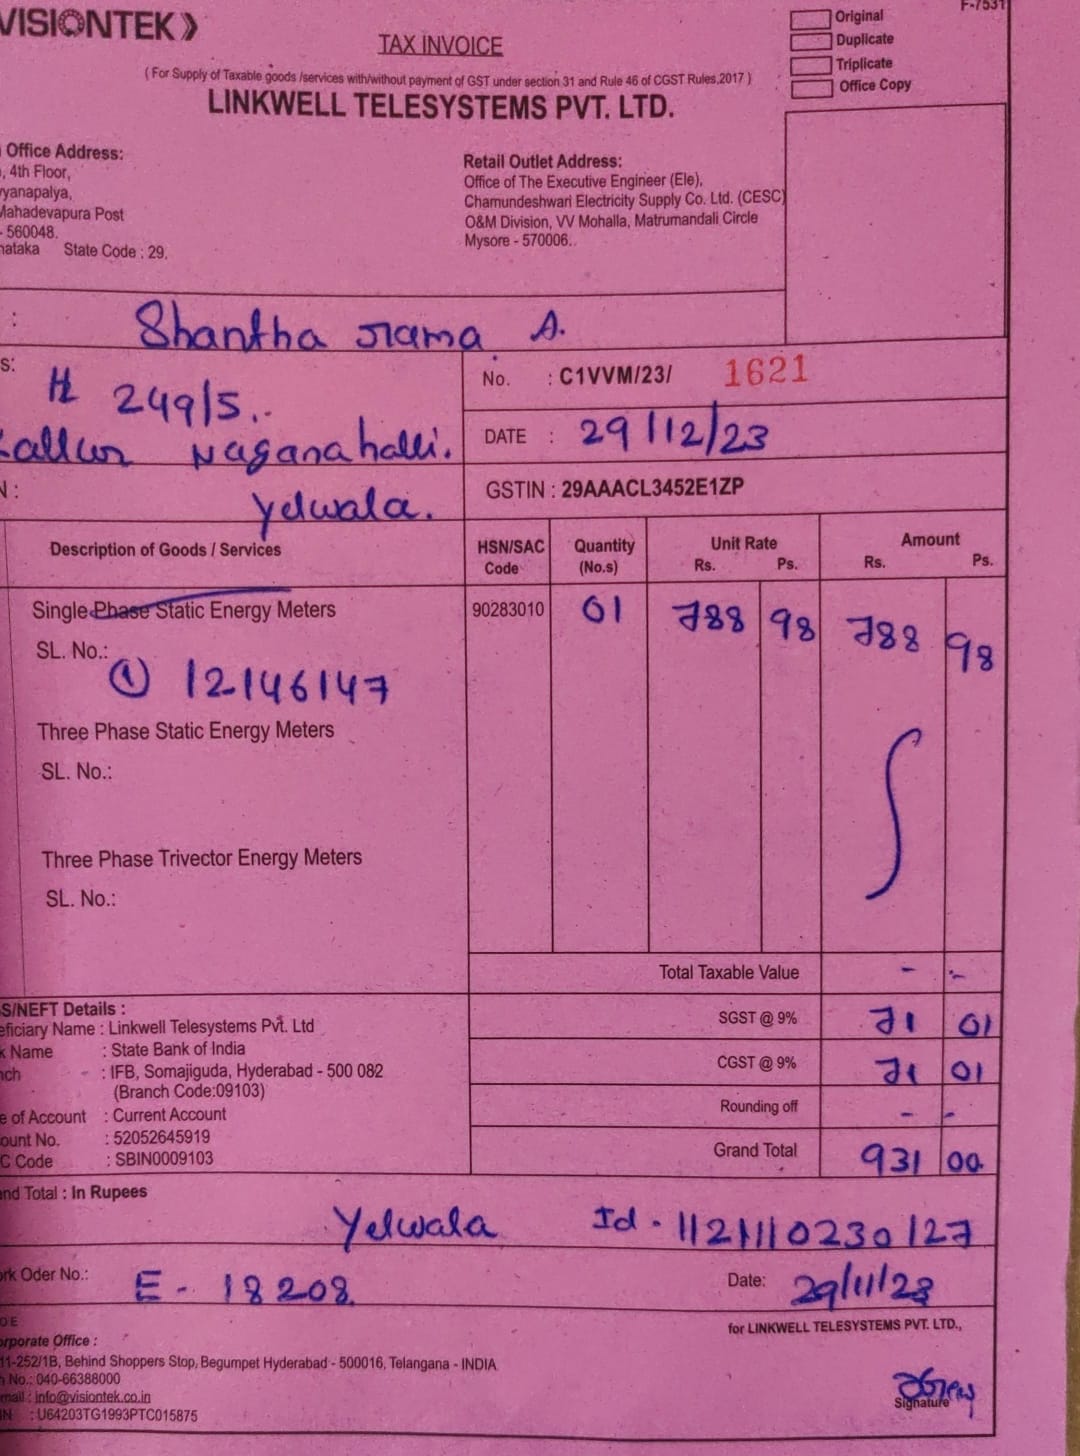 VISIONTEK
F-7531
Original
Duplicate
Triplicate
Office Copy
TAX INVOICE
( For Supply of Taxable goods /services with/without payment of GST under section 31 and Rule 46 of CGST Rules,2017 )
LINKWELL TELESYSTEMS PVT. LTD.
Office Address:
, 4th Floor,
yanapalya,
Mahadevapura Post
- 560048.
nataka State Code : 29,
Retail Outlet Address:
Office of The Executive Engineer (Ele),
Chamundeshwari Electricity Supply Co. Ltd. (CESC)
O&M Division, VV Mohalla, Matrumandali Circle
Mysore - 570006.
: Shantha rama A.
s:
249/5.
Naganahalli.
N :
Yelwala.
No. : C1VVM/23/ 1621
DATE : 29/12/23
GSTIN : 29AAACL3452E1ZP
Description of Goods / Services HSN/SAC Code Quantity (No.s) Unit Rate Rs. Ps. Amount Rs. Ps.
Single Phase Static Energy Meters 90283010 01 788 98 788 98
SL. No.:
① 12146147
Three Phase Static Energy Meters
SL. No.:
Three Phase Trivector Energy Meters
SL. No.:
Total Taxable Value - -
SGST @ 9% 71 01
CGST @ 9% 71 01
Rounding off - -
Grand Total 931 00
S/NEFT Details :
eficiary Name : Linkwell Telesystems Pvt. Ltd
k Name : State Bank of India
nch : IFB, Somajiguda, Hyderabad - 500 082
(Branch Code:09103)
e of Account : Current Account
ount No. : 52052645919
C Code : SBIN0009103
nd Total : In Rupees
Yelwala Id - 1121110230127
rk Oder No.: E - 18208 Date: 29/11/23
for LINKWELL TELESYSTEMS PVT. LTD.,
orporate Office :
11-252/1B, Behind Shoppers Stop, Begumpet Hyderabad - 500016, Telangana - INDIA
No.: 040-66388000
mail : info@visiontek.co.in
IN : U64203TG1993PTC015875
Signature